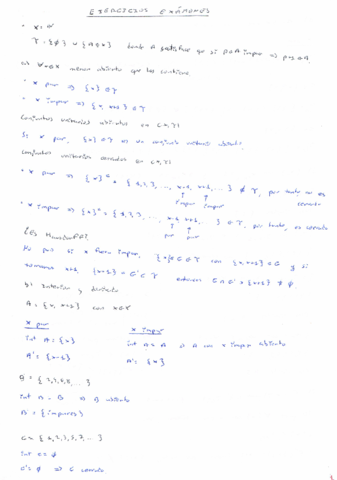 EJERCICIOS EXÁMENES
* X = N
τ = {∅} ∪ {A ⊂ X} donde A satisface que si p∈A impar ⇒ p+1∈A.
a) ∀x∈X menor abierto que los contiene
* x par ⇒ {x} ∈ τ
* x impar ⇒ {x, x+1} ∈ τ
Conjuntos unitarios abiertos en (X, τ)
Si x par, {x} ∈ τ ⇒ un conjunto unitario abierto.
Conjuntos unitarios cerrados en (X, τ)
* x par ⇒ {x}ᶜ = {1, 2, 3, ..., x-1, x+1, ...} ∉ τ, por tanto no es cerrado
impar impar
* x impar ⇒ {x}ᶜ = {1, 2, 3, ..., x-1, x+1, ...} ∈ τ, por tanto, es cerrado
par par
¿Es Hausdorff?
No pues si x fuera impar, G ∈ τ con {x, x+1} ⊂ G y si
tomamos x+1, {x+1} = G' ∈ τ entonces G ∩ G' = {x+1} ≠ ∅
b) Interior y derivado
A = {x, x+1} con x∈X
x par
x impar
int A = {x}
int A = A si A con x impar abierto
A' = {x-1}
A' = {x}
B = {
int B = B ⇒ B abierto
B' = {impares}
C = {1, 2, 3, 5, 7, ...}
C' = ∅ ⇒ C cerrado
1